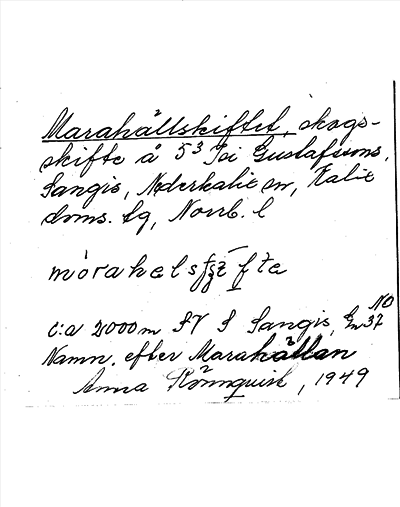 Marahällskiftet, skogs-
skifte å 5³ Isi Gustafssons,
Sangis, Nederkalix sn, Kalix
doms. tg, Norrb. l
mòrahels
c:a 2000 m SV S Sangis, NO 37
Namn. efter Marahällan
Anna Rönnquist, 1949